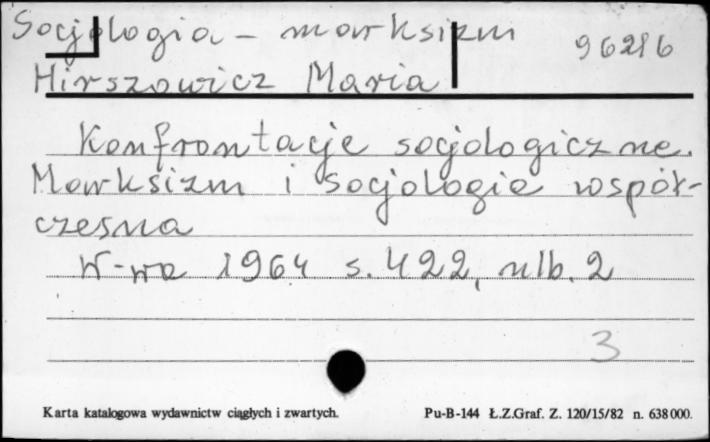 Socjologia - marksizm 96216
Hirszowicz Maria
Konfrontacje socjologiczne.
Marksizm i socjologia współ-
czesna
W-wa 1964 s. 422, nlb. 2
3
Karta katalogowa wydawnictw ciągłych i zwartych. Pu-B-144 Ł.Z.Graf. Z. 120/15/82 n. 638000.